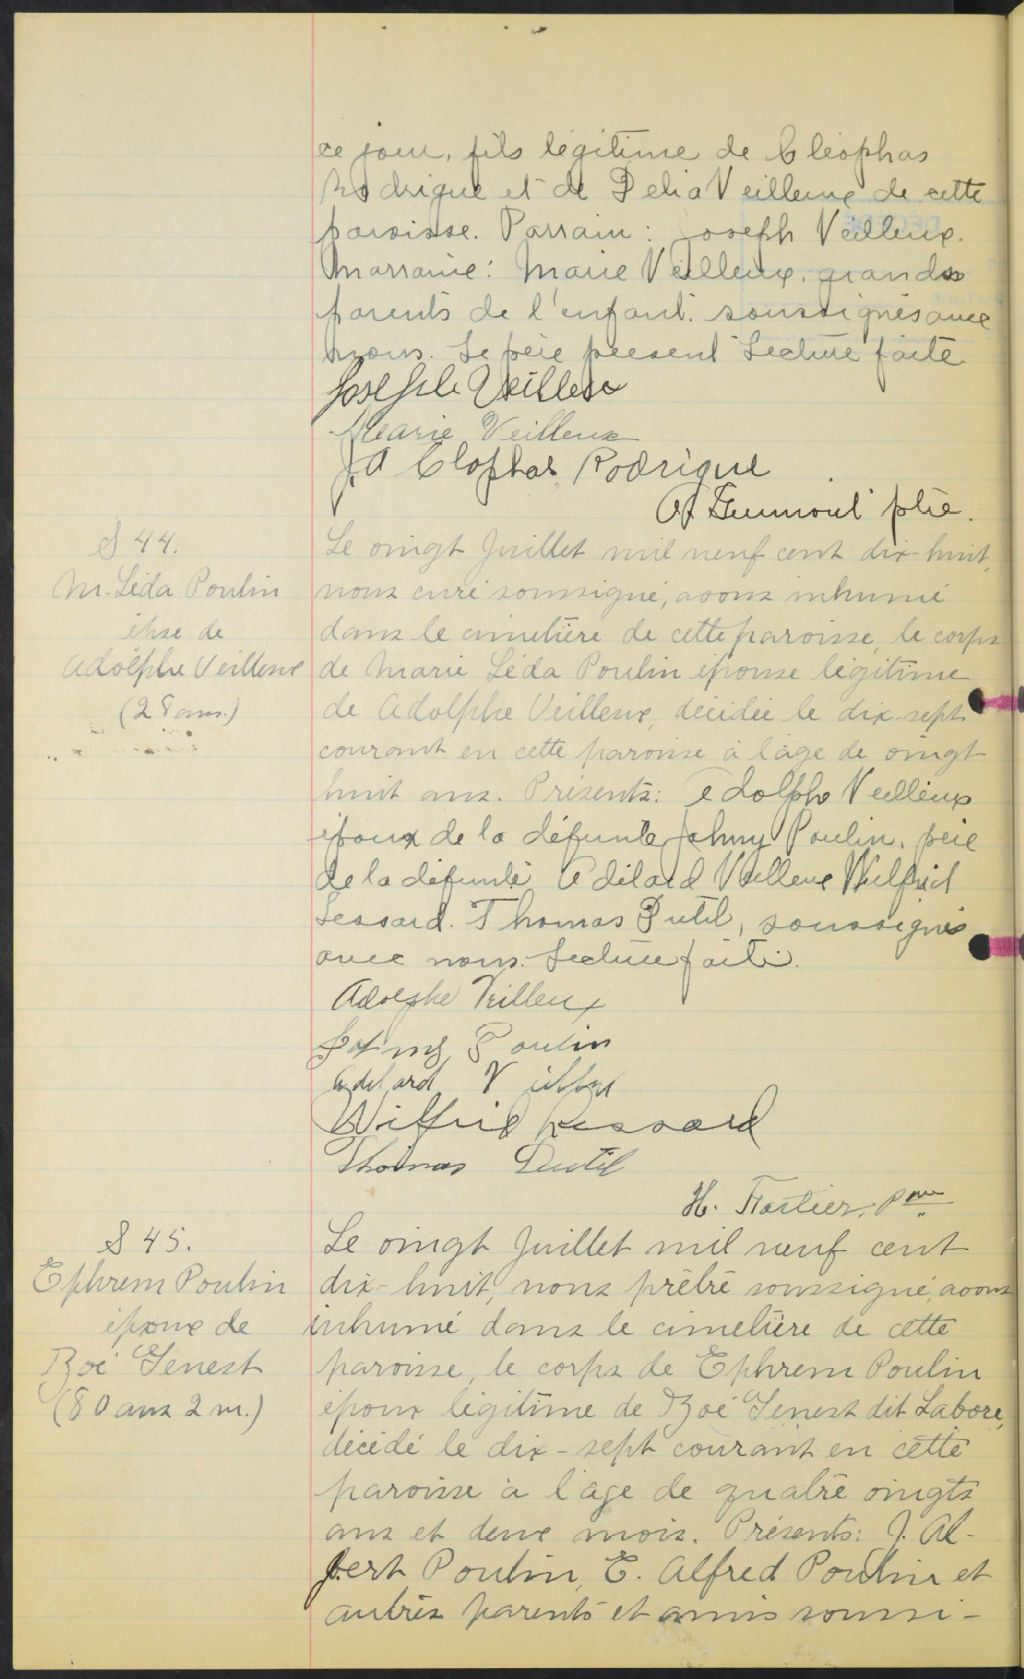 ce jour, fils légitime de Cléophas
Rodrigue et de Delia Veilleux de cette
paroisse. Parrain: Joseph Veilleux.
Marraine: Marie Veilleux, grands
parents de l'enfant, soussignés avec
nous. Le père présent Lecture faite
Joseph Veilleux
Marie Veilleux
J. A Clophas Rodrigue
ptre.
S 44.
M. Léda Poulin
épse de
Adolphe Veilleux
(28 ans.)
Le vingt Juillet mil neuf cent dix-huit,
nous curé soussigné, avons inhumé
dans le cimetière de cette paroisse, le corps
de Marie Léda Poulin épouse légitime
de Adolphe Veilleux, décédée le dix-sept
courant en cette paroisse à l'âge de vingt
huit ans. Présents: Adolphe Veilleux
époux de la défunte Johny Poulin, père
de la défunte Adélard Veilleux Wilfrid
Lessard. Thomas Dutil, soussignés
avec nous. Lecture faite.
Adolphe Veilleux
Johny Poulin
Adélard Veilleux
Wilfrid Lessard
Thomas Dutil
H. Fortier, P
S 45.
Ephrem Poulin
époux de
Zoé Genest
(80 ans 2 m.)
Le vingt Juillet mil neuf cent
dix-huit, nous prêtre soussigné, avons
inhumé dans le cimetière de cette
paroisse, le corps de Ephrem Poulin
époux légitime de Zoé Genest dit Labore,
décédé le dix-sept courant en cette
paroisse à l'âge de quatre vingts
ans et deux mois. Présents: J. Al-
bert Poulin, E. Alfred Poulin et
autres parents et amis soussi-